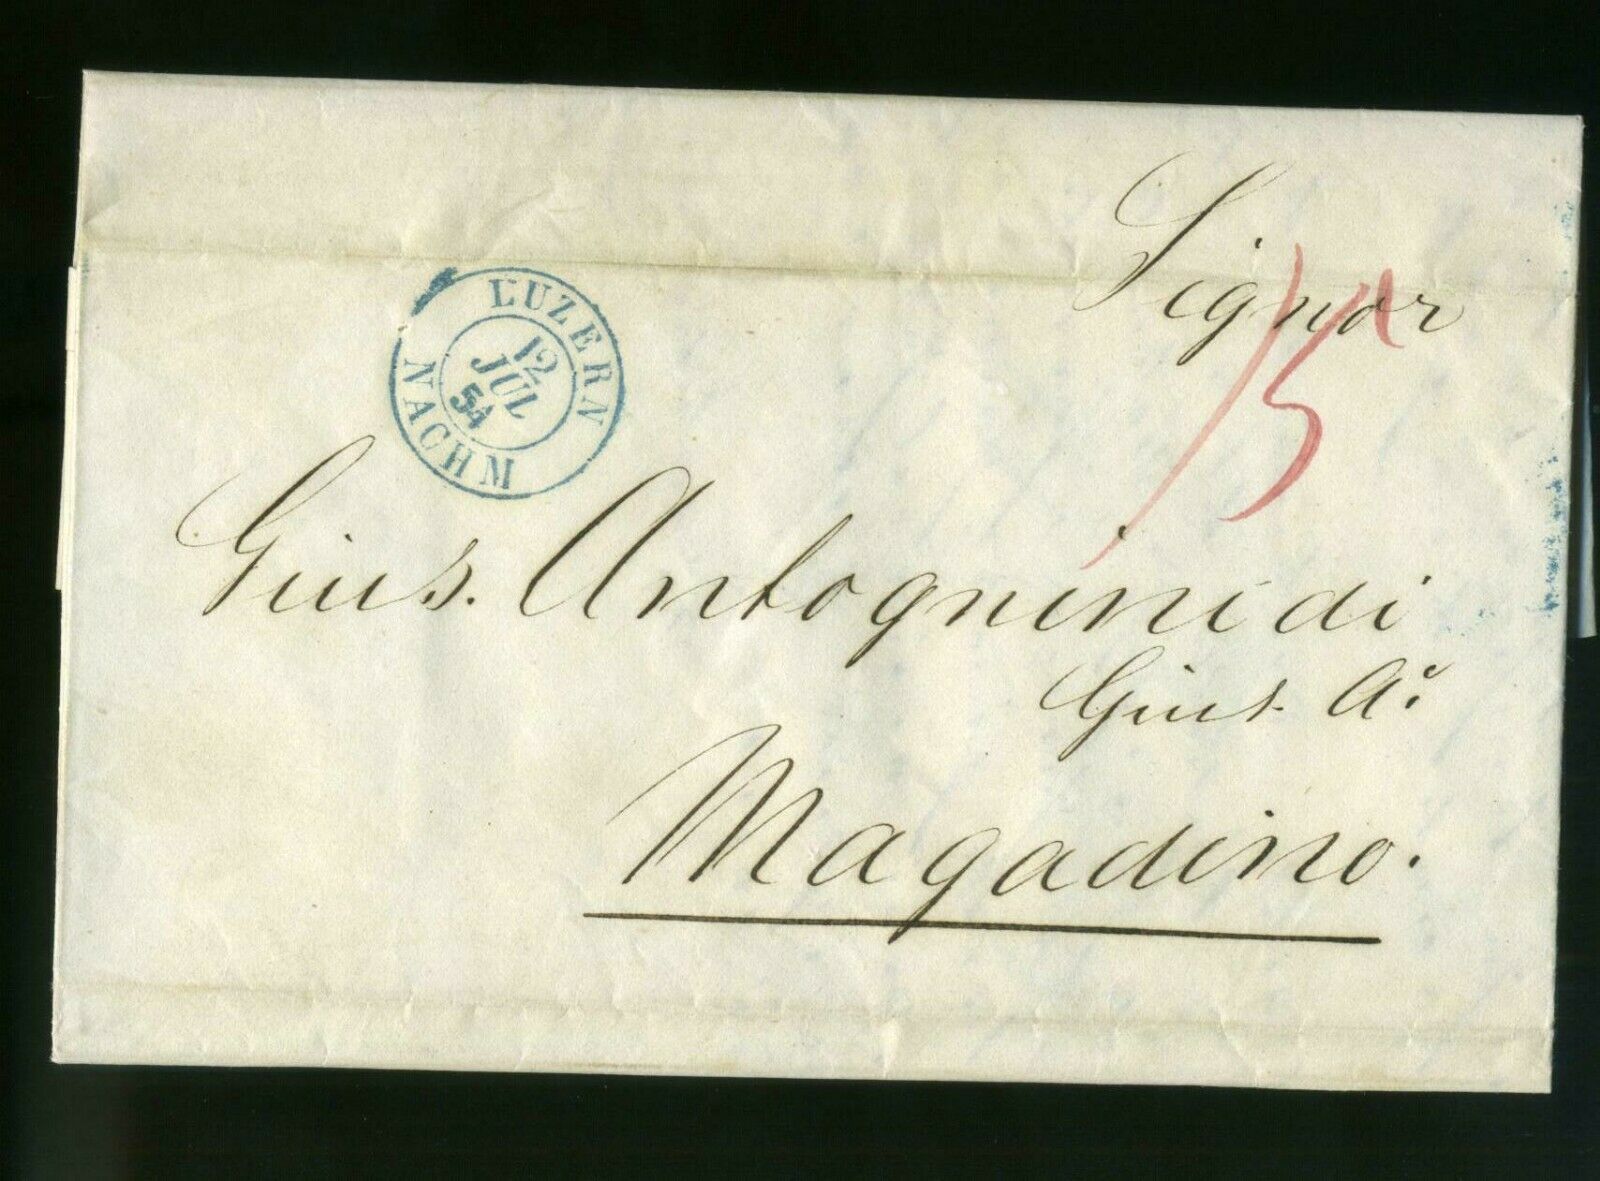 Signor
15
LUZERN
12
JUL
54
NACHM
Gius. Antognini di
Gius. A.
Magadino.